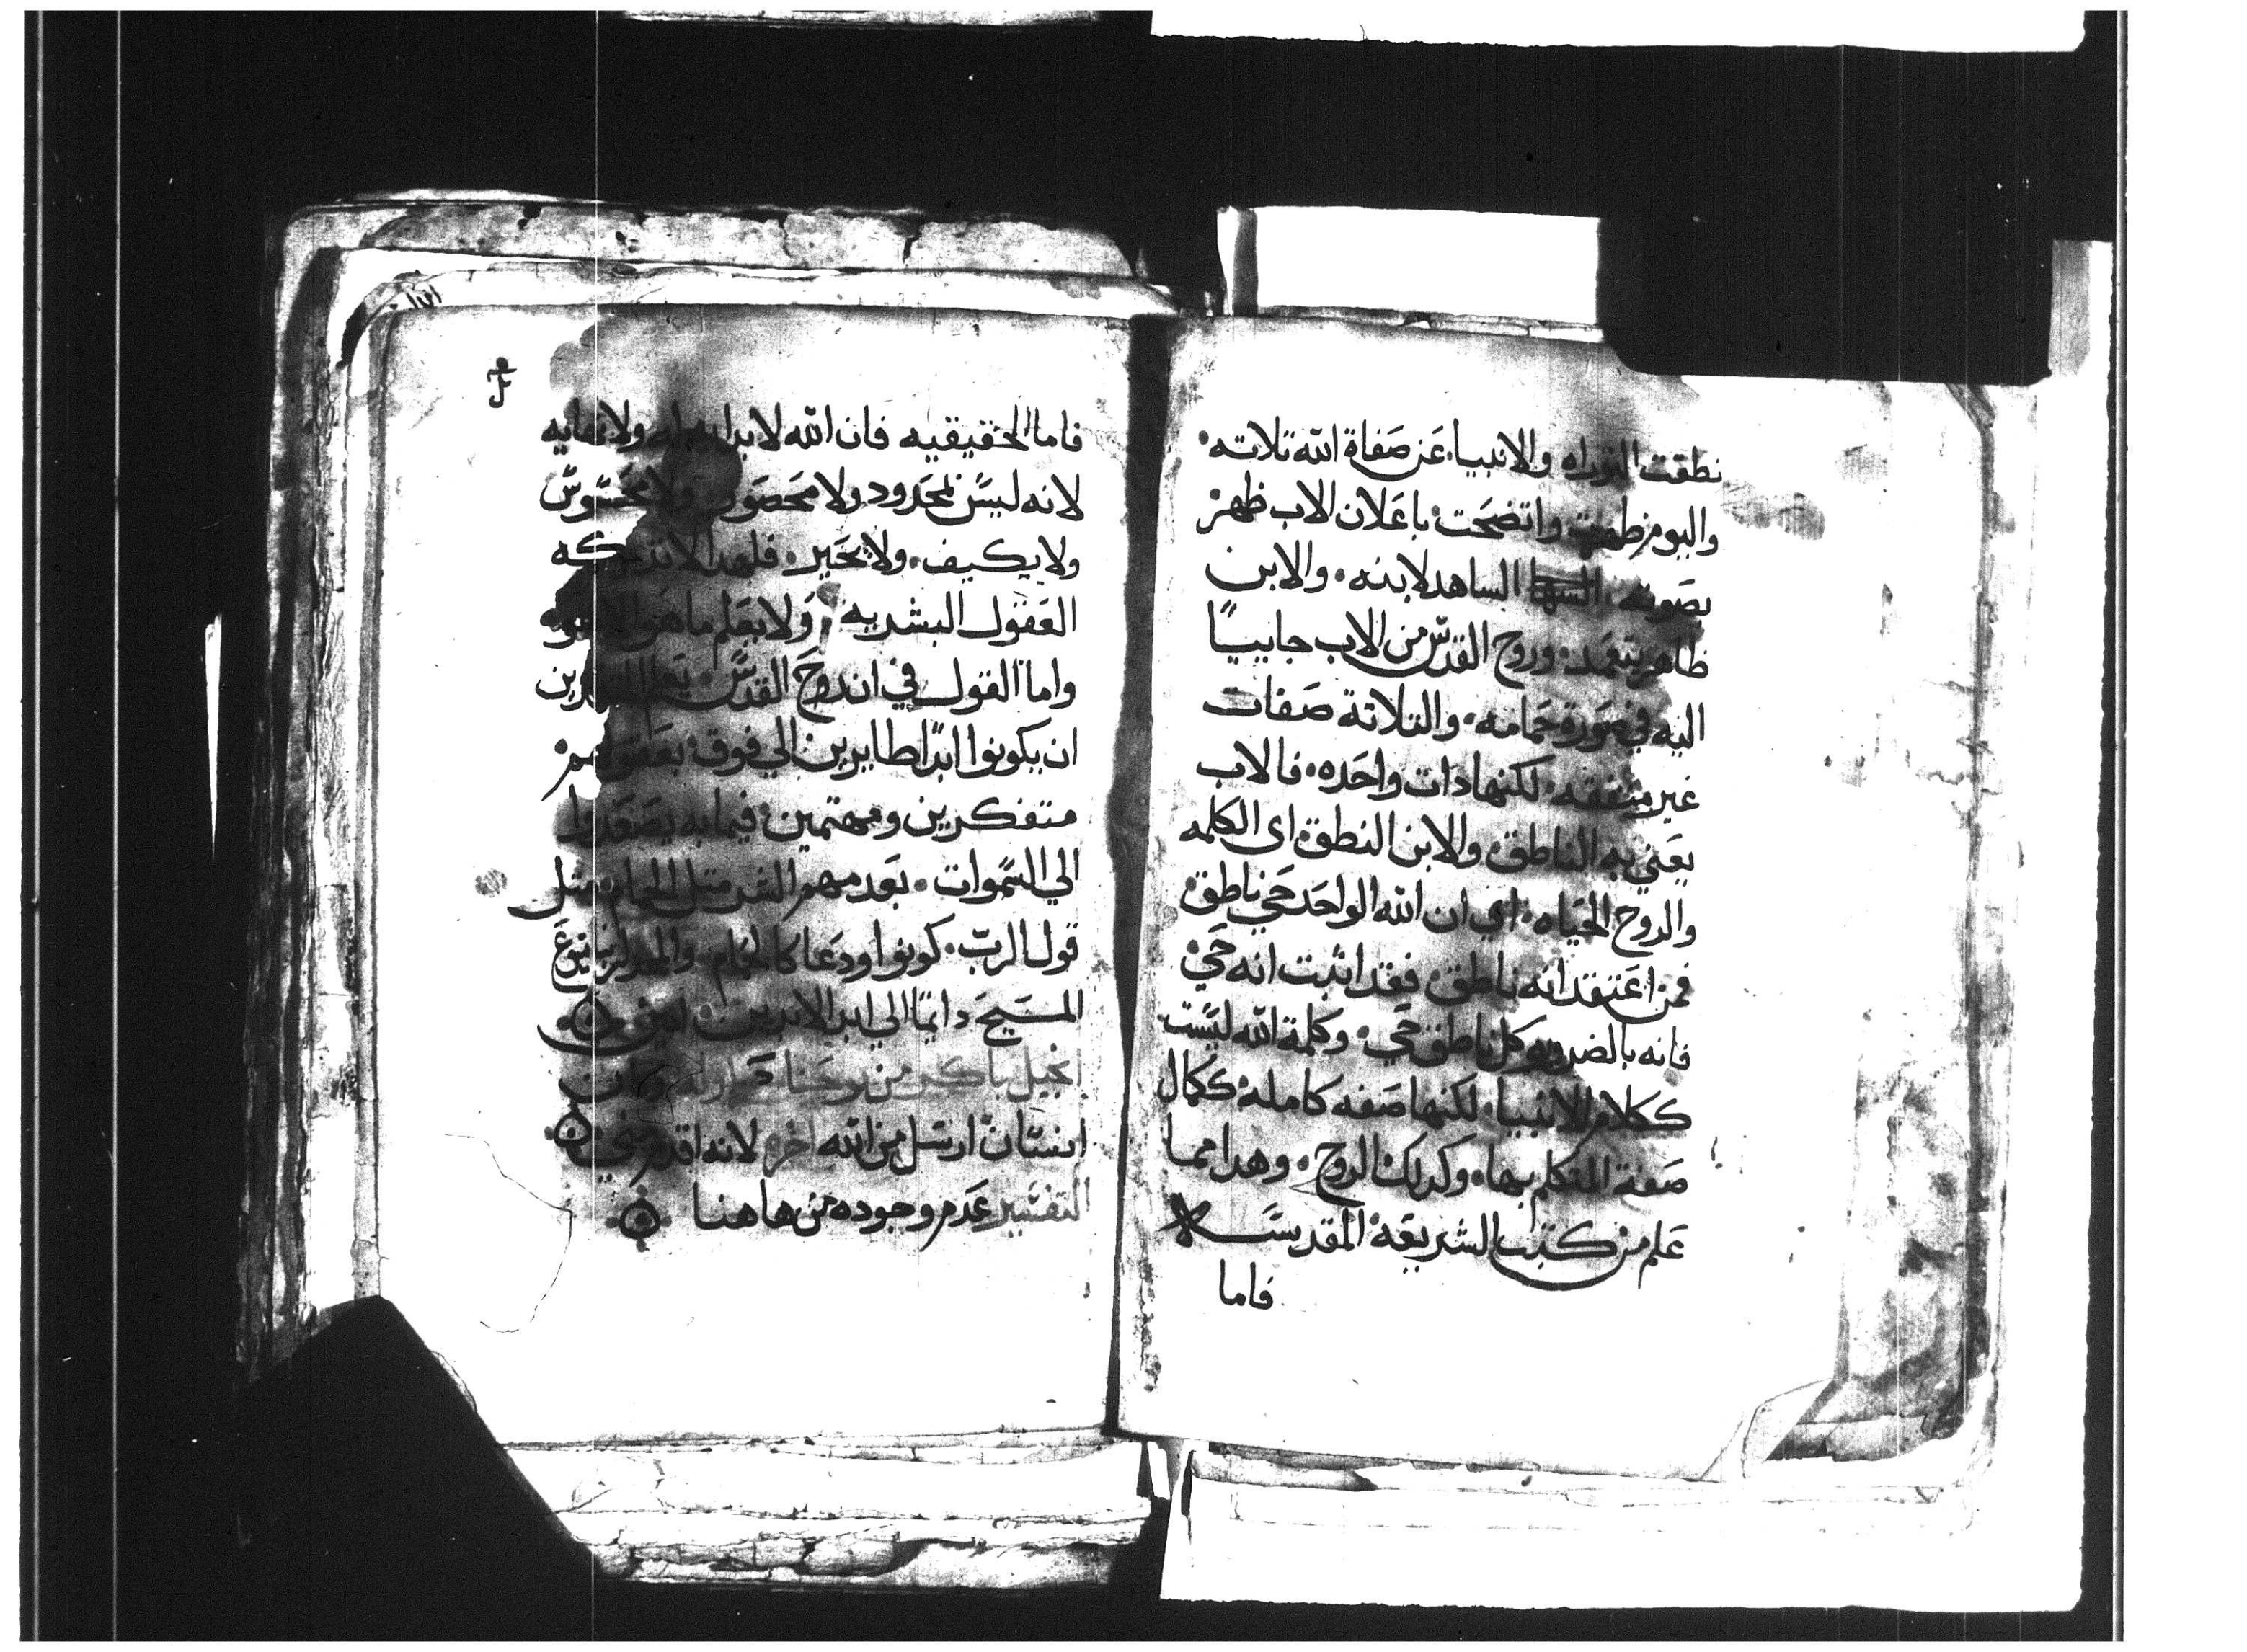 نطقت التوراه والانبيا، عن صفاة الله تلاته.
واليوم ظهرت واتضحت. باعلان الاب ظهر
بصوته. الساهد لابنه. والابن
ظاهر يتعمد. وروح القدس من الاب جاييًا
اليه في صورة حمامه. والتلاتة صفات
غير متفقه. لكنها دات واحده. فالاب
يعني به الناطق. والابن النطق اى الكلمه
والروح الحياه. اي ان الله الواحد حي ناطق.
فمن اعتقد انه ناطق. فقد اتبت انه حي
فانه بالضروره كل ناطق حي. وكلمة الله ليست
ككلام الانبيا. لكنها صفه كامله ككمال
صفة المتكلم بها. وكدلك الروح. وهدا مما
علم من كتب الشريعة المقدسه
فاما
فاما الحقيقيه فان الله لا بدايه له ولا نهايه
لانه ليس محدود ولا محصور ولا محسوس
ولا يكيف. ولا يحير. فلهدا لا تدركه
العقول البشريه. ولا يعلم ما هو الا هو
واما القول في ان روح القدس.
ان يكونوا ابدًا طايرين الي فوق. بعقولهم
متفكرين ومهتمين. فيما به يصعدوا
الي السموات. بعدمهم الشر متل الحمام. متل
قول الرب. كونوا ودعا كالحمام. والمجد
المسيح دايمًا الي ابد الابدين. امين
انجيل باكر من يوحنا اوله وكان
انسان ارسل من الله اخره لانه اقدم مني
التفسير عدم وجوده من هاهنا